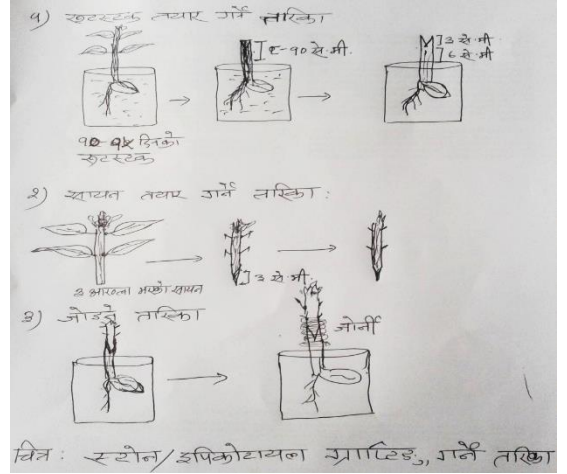 १) रुटस्टक तयार गर्ने तरिका
८-१० से.मी.
३ से.मी
६ से.मी
१०-१५ दिनको
रुटस्टक
२) सायन तयार गर्ने तरिका:
३ आख्ला भएको सायन
३ से.मी.
३) जोड्ने तरिका
जोर्नी
चित्र: स्टोन/इपिकोटायल ग्राफ्टिङ्ग गर्ने तरिका